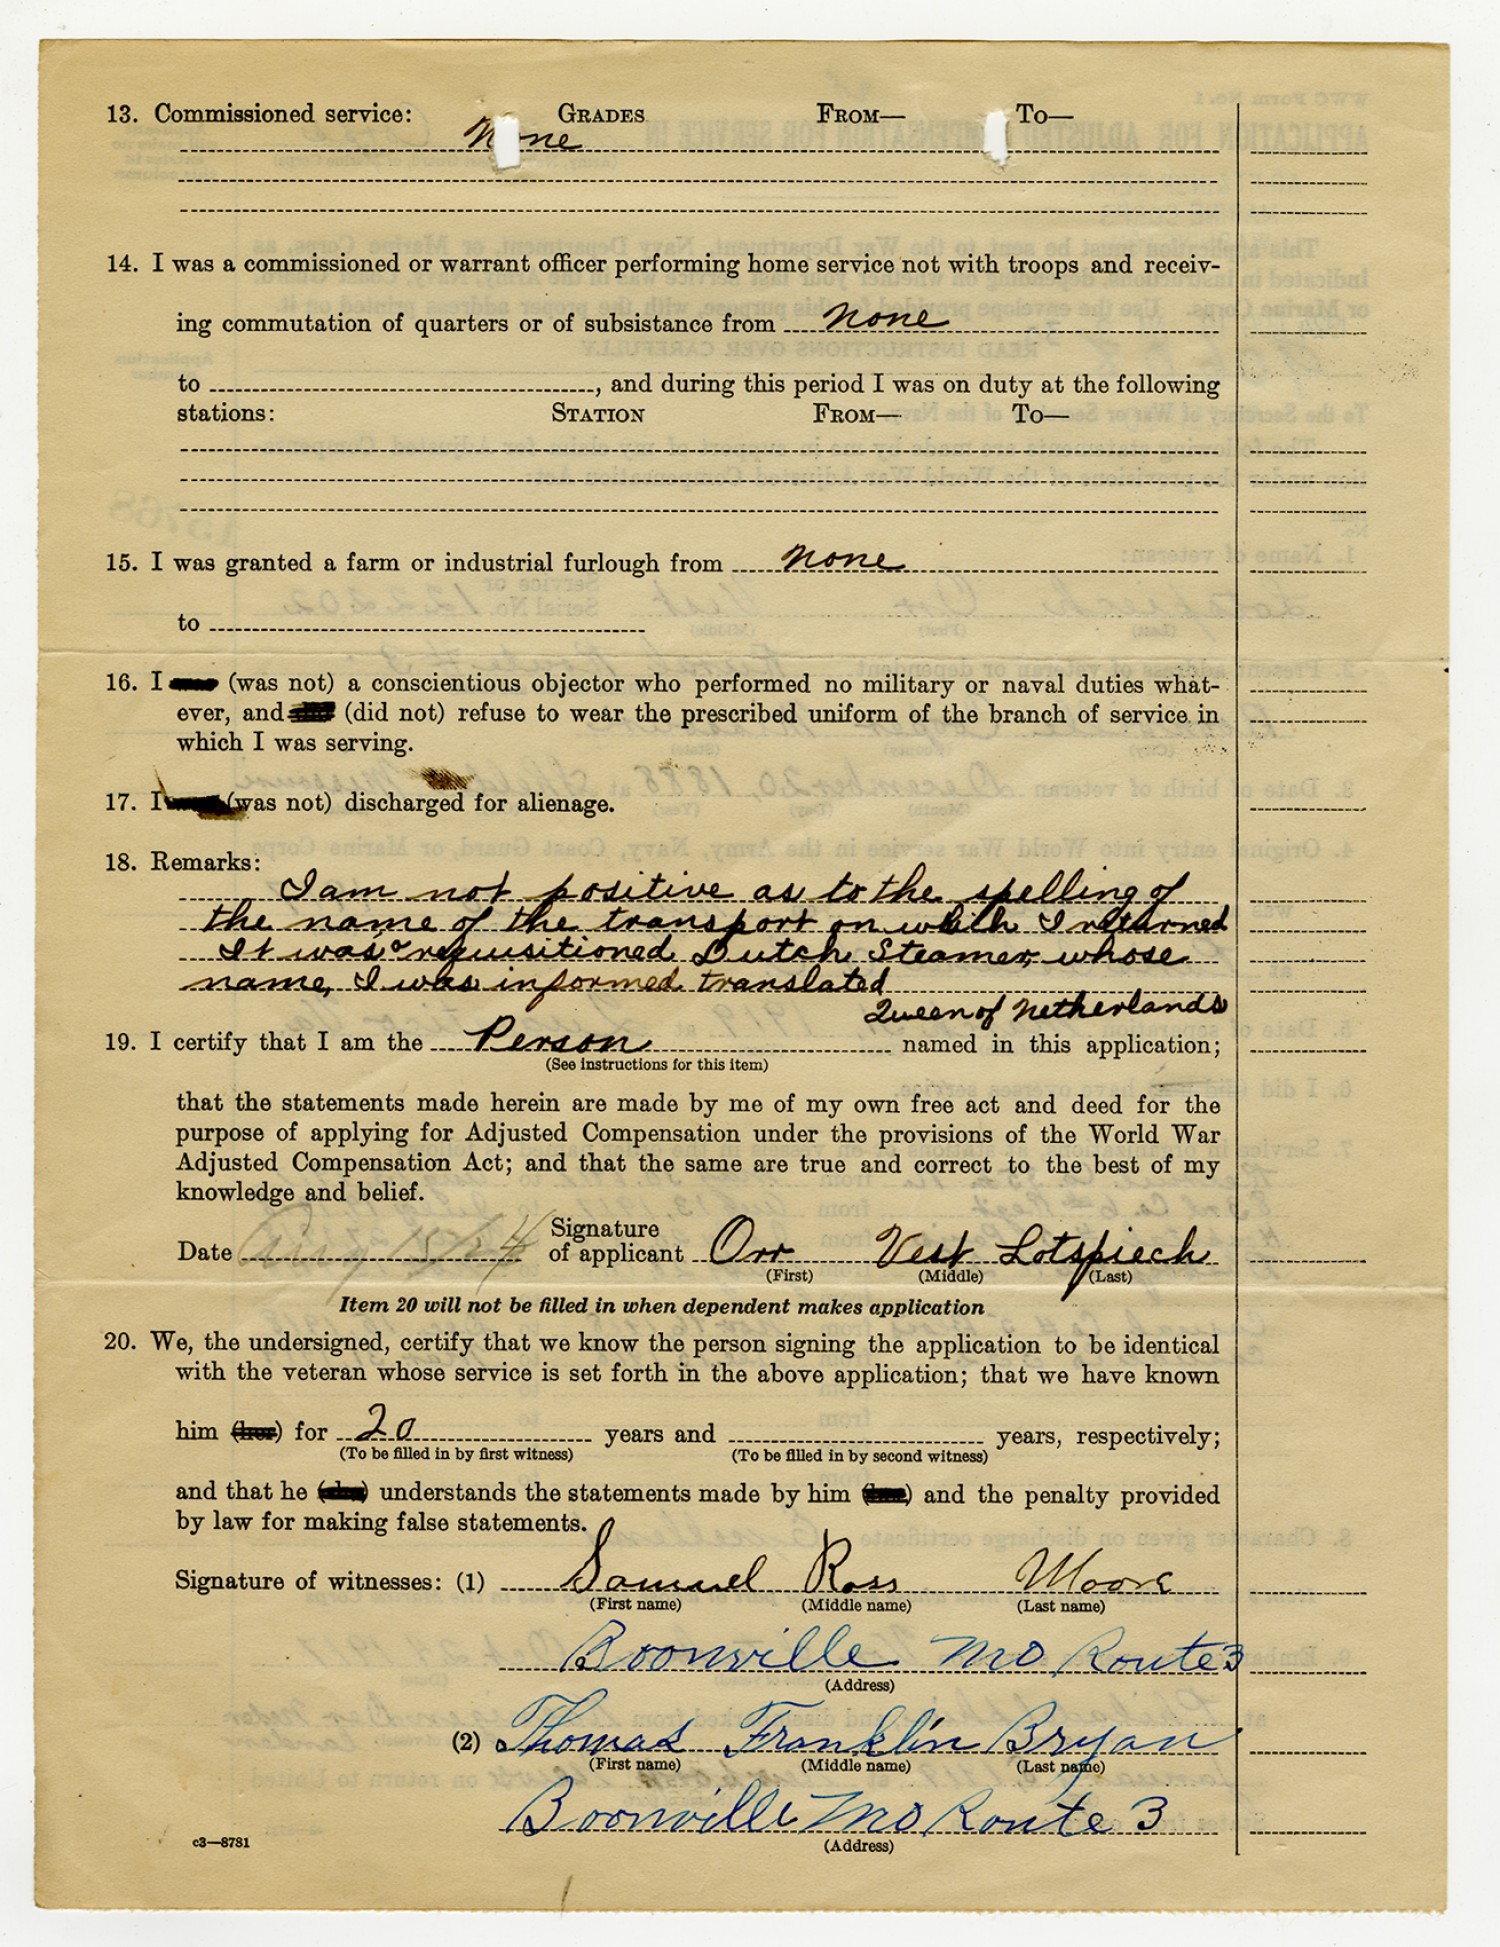 13. Commissioned service: GRADES FROM— To—
None
14. I was a commissioned or warrant officer performing home service not with troops and receiv-
ing commutation of quarters or of subsistance from none
to , and during this period I was on duty at the following
stations: STATION FROM— To—
15. I was granted a farm or industrial furlough from none
to
16. I (was not) a conscientious objector who performed no military or naval duties what-
ever, and (did not) refuse to wear the prescribed uniform of the branch of service in
which I was serving.
17. I (was not) discharged for alienage.
18. Remarks:
I am not positive as to the spelling of
the name of the transport on which I returned
It was a requisitioned Dutch Steamer, whose
name, I was informed translated
Queen of Netherlands
19. I certify that I am the Person named in this application;
(See instructions for this item)
that the statements made herein are made by me of my own free act and deed for the
purpose of applying for Adjusted Compensation under the provisions of the World War
Adjusted Compensation Act; and that the same are true and correct to the best of my
knowledge and belief.
Signature
Date Aug 15/24 of applicant Orr Vest Lotspiech
(First) (Middle) (Last)
Item 20 will not be filled in when dependent makes application
20. We, the undersigned, certify that we know the person signing the application to be identical
with the veteran whose service is set forth in the above application; that we have known
him (her) for 20 years and years, respectively;
(To be filled in by first witness) (To be filled in by second witness)
and that he (she) understands the statements made by him (her) and the penalty provided
by law for making false statements.
Signature of witnesses: (1) Samuel Ross Moore
(First name) (Middle name) (Last name)
Boonville Mo Route 3
(Address)
(2) Thomas Franklin Bryan
(First name) (Middle name) (Last name)
Boonville Mo Route 3
(Address)
c3—8781